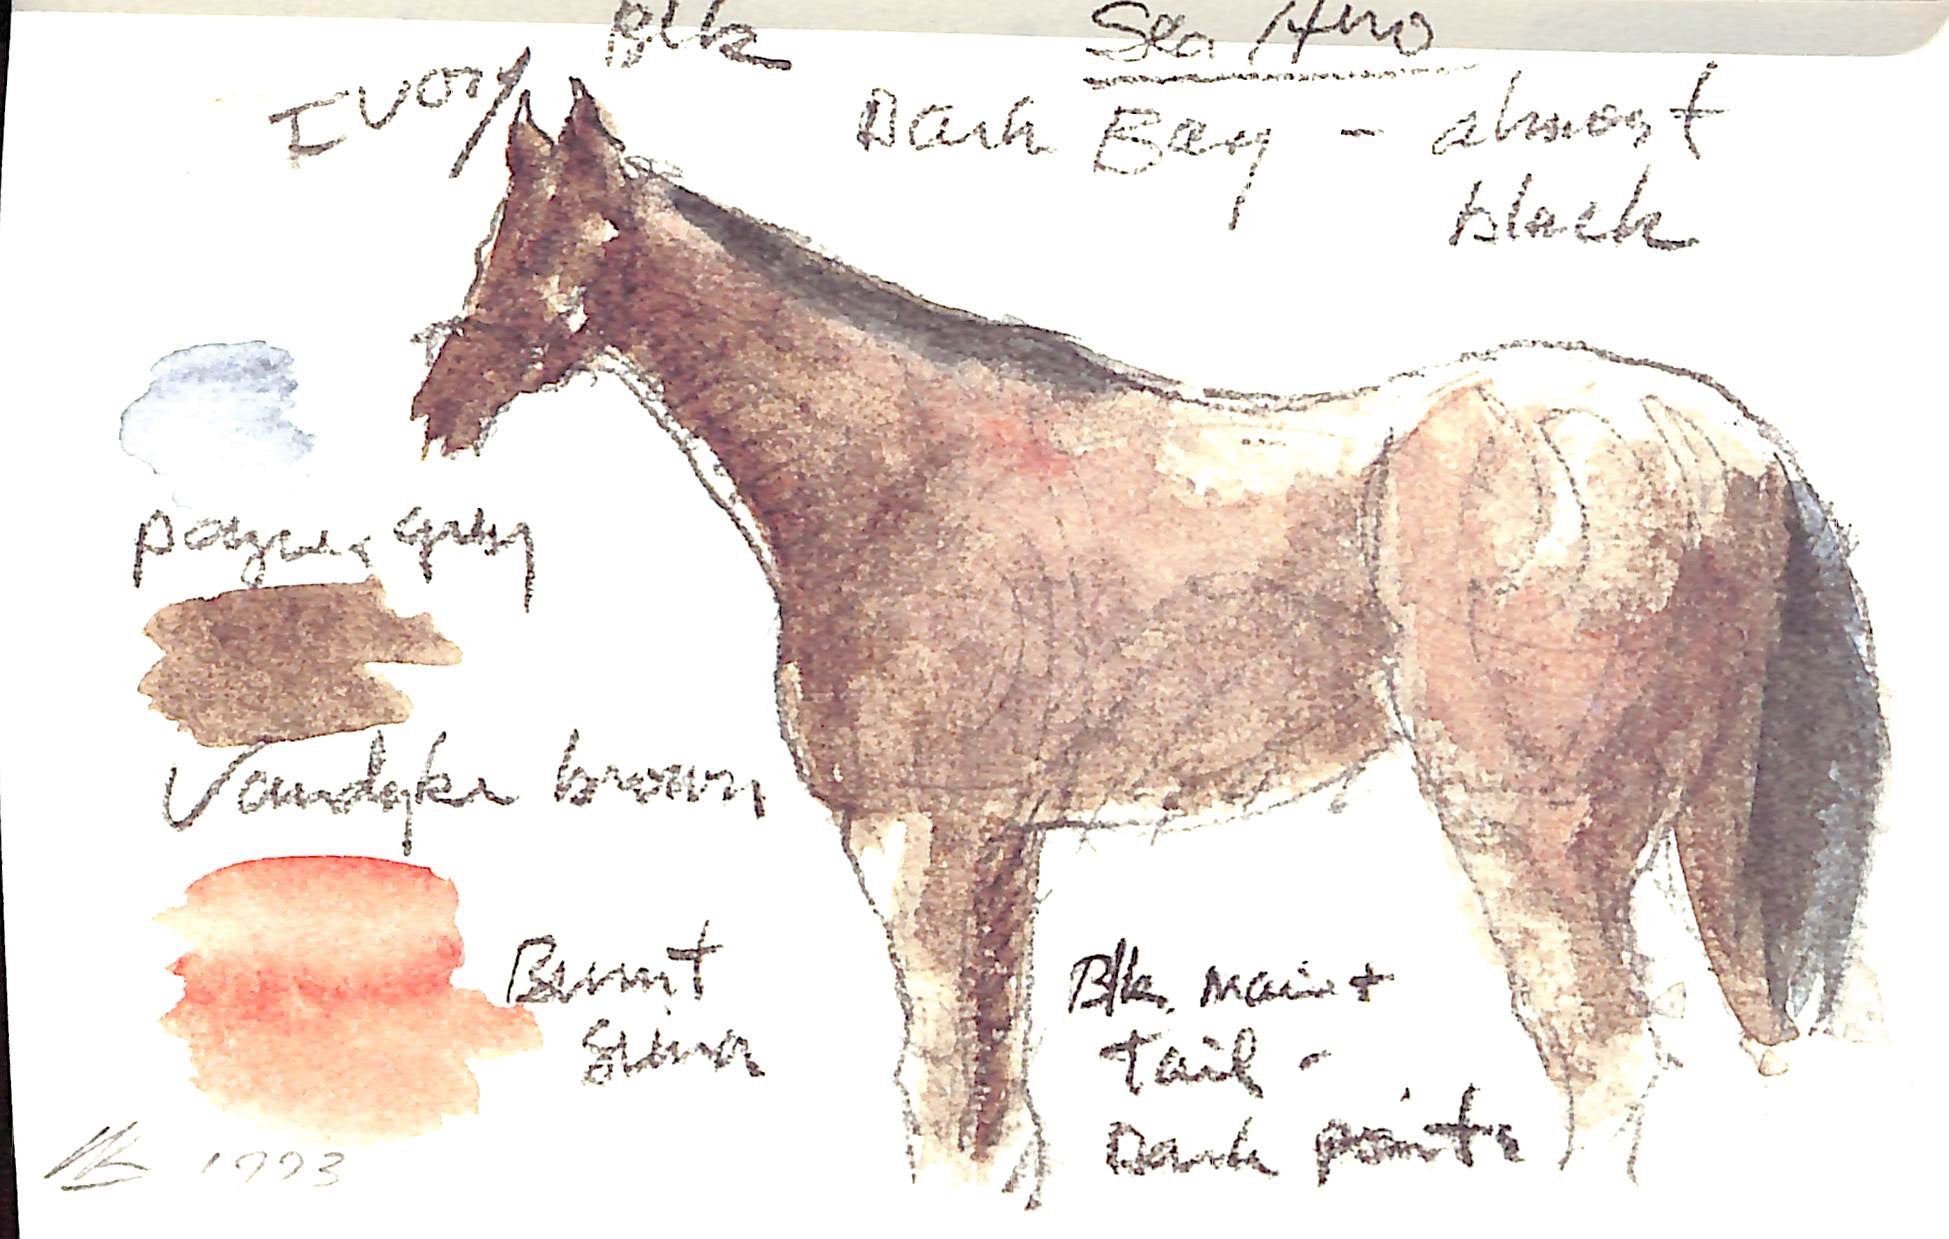 Ivory Blk
Sea Hero
Dark Bay - almost
black
payne gray
Vandyke brown
Burnt
Siena
Blk. Main +
tail -
Dark points
1993